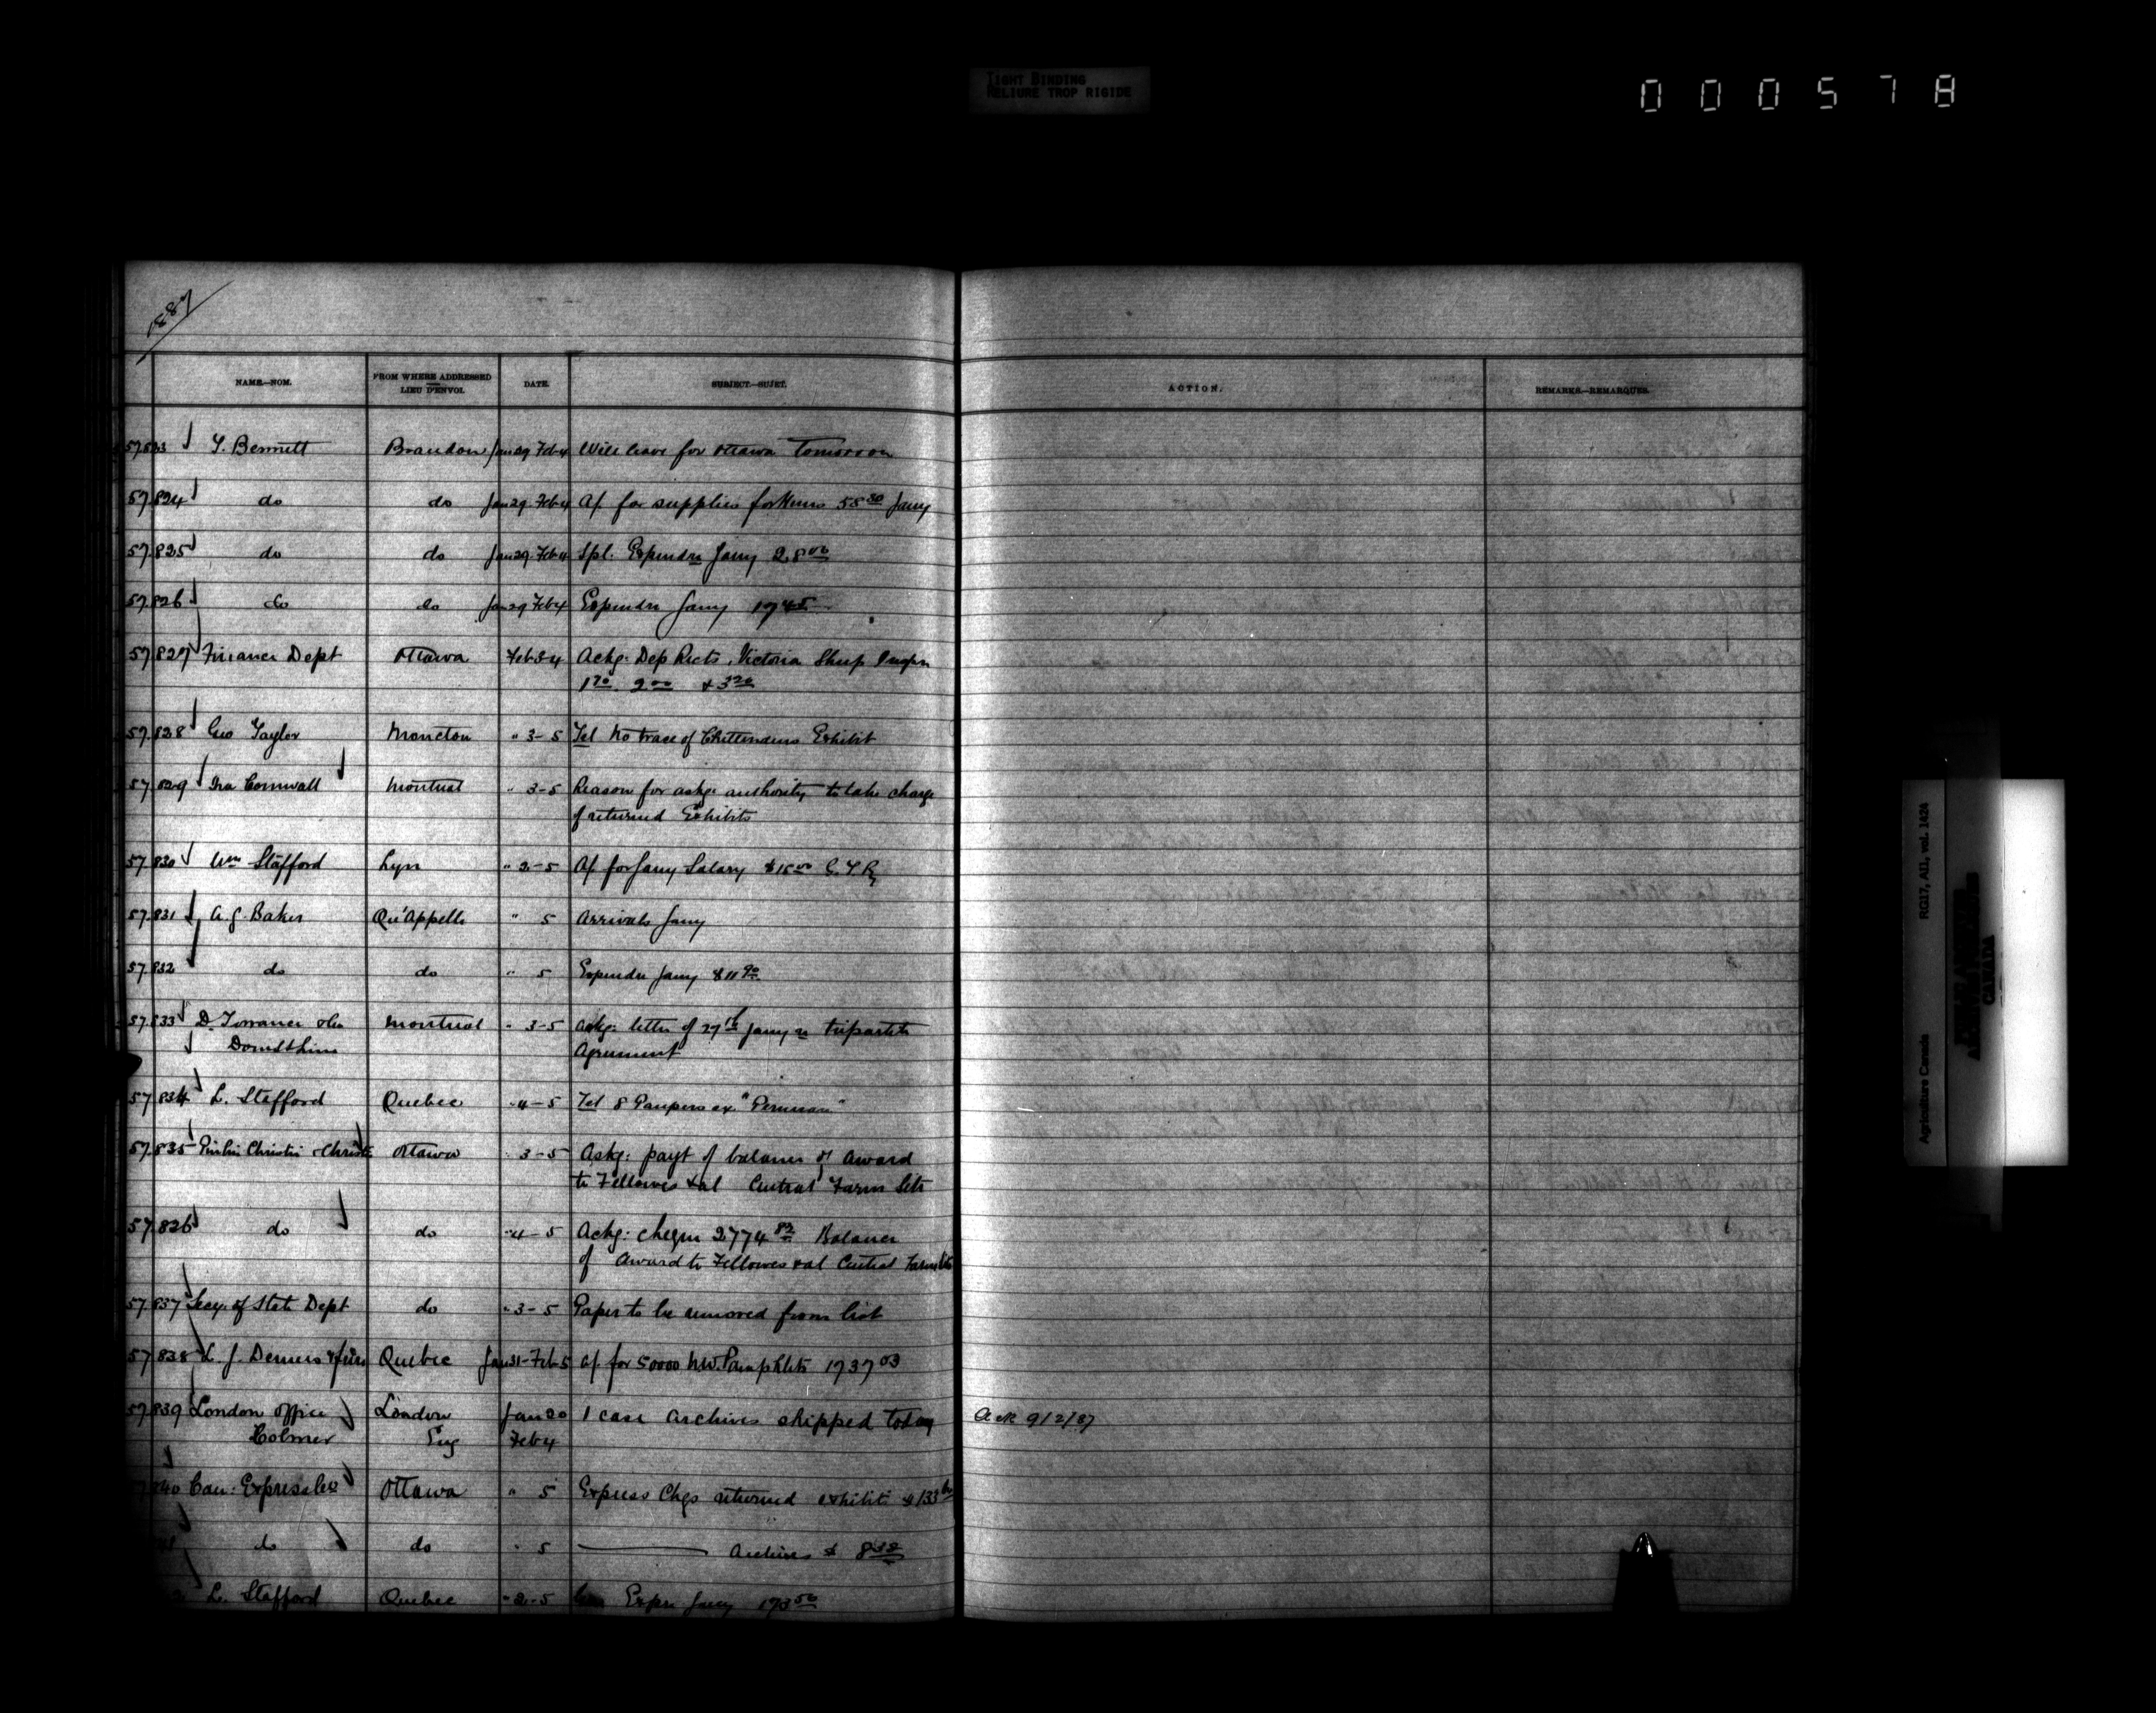 TIGHT BINDING
RELIURE TROP RIGIDE
000578
1887
NAME.—NOM. FROM WHERE ADDRESSED LIEU D'ENVOI. DATE. SUBJECT.—SUJET. ACTION. REMARKS.—REMARQUES.
57.823 T. Bennett Brandon Jan 29 Feb 4 Will leave for Ottawa Tomorrow
57.824 do do Jan 29 Feb 4 A/. for supplies for 58 30 Jany
57.825 do do Jan 29 Feb 4 Spl. Expendre Jany 28 00
57.826 do do Jan 29 Feb 4 Expendre Jany 1745
57.827 Finance Dept Ottawa Feb 3-4 Ackg. Dep Rects, Victoria Sheep Inspn
1 70 2 00 & 3 20
57.828 Geo Taylor Moncton " 3-5 Tel No trace of Chittendens Exhibit
57.829 Ira Cornwall Montreal " 3-5 Reason for askg. authority to take charge
of returned Exhibits
57.830 Wm Stafford Lyn " 2-5 A/. for Jany Salary $15 00 G.T.R
57.831 A. G. Baker Qu'Appelle " 5 Arrivals Jany
57.832 do do " 5 Expendre Jany $11 90
57.833 D. Torrance & Co Montreal " 3-5 Ackg. letter of 27th Jany re tripartite
Agreement
57.834 L. Stafford Quebec " 4-5 Tel 8 Paupers ex "Peruvian"
57.835 Christie & Christie Ottawa " 3-5 Askg: payt of balance of Award
to Fellowes & al Central Farm Site
57.826 do do " 4-5 Ackg: cheque 2774 82 Balance
of Award to Fellowes & al Central Farm Site
57.837 Secy. of State Dept do " 3-5 Paper to be removed from list
57.838 L. J. Demers & frère Quebec Jan 31-Feb 5 A/. for 50000 N.W. Pamphlets 1737 03
57.839 London Office London Jan 20 1 case Archives shipped today Ack 9/2/87
Colmer Eng Feb 4
840 Can: Express Co Ottawa " 5 Express Chgs returned exhibits $133
do do " 5 Archives $ 8 38
L. Stafford Quebec " 2-5 Expre Jany 173 50
RG17, AII, vol. 1424
Agriculture Canada
CANADA